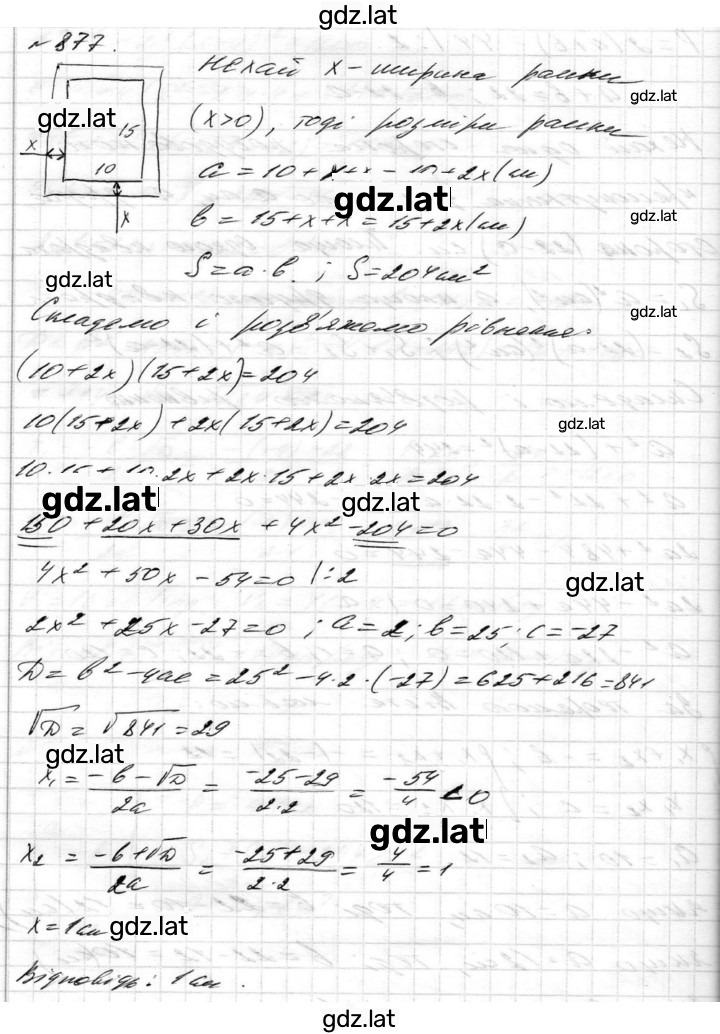 gdz.lat
№ 877.
нехай x – ширина рамки
gdz.lat
gdz.lat
15
(x>0), тоді розміри рамки
x
10
a = 10 + x + x = 10 + 2x (см)
gdz.lat
gdz.lat
x
b = 15 + x + x = 15 + 2x (см)
S = a · b. ; S = 204 см²
gdz.lat
gdz.lat
Складемо і розв'яжемо рівняння:
(10 + 2x)(15 + 2x) = 204
10(15 + 2x) + 2x(15 + 2x) = 204
gdz.lat
10·15 + 10·2x + 2x·15 + 2x·2x = 204
gdz.lat
gdz.lat
150 + 20x + 30x + 4x² - 204 = 0
4x² + 50x - 54 = 0 |:2
gdz.lat
2x² + 25x - 27 = 0 ; a = 2; b = 25; c = -27
D = b² - 4ac = 25² - 4·2·(-27) = 625 + 216 = 841
√D = √841 = 29
gdz.lat
x₁ = (-b - √D)/2a = (-25 - 29)/2·2 = -54/4 < 0
gdz.lat
x₂ = (-b + √D)/2a = (-25 + 29)/2·2 = 4/4 = 1
x = 1 см
gdz.lat
Відповідь: 1 см.
gdz.lat